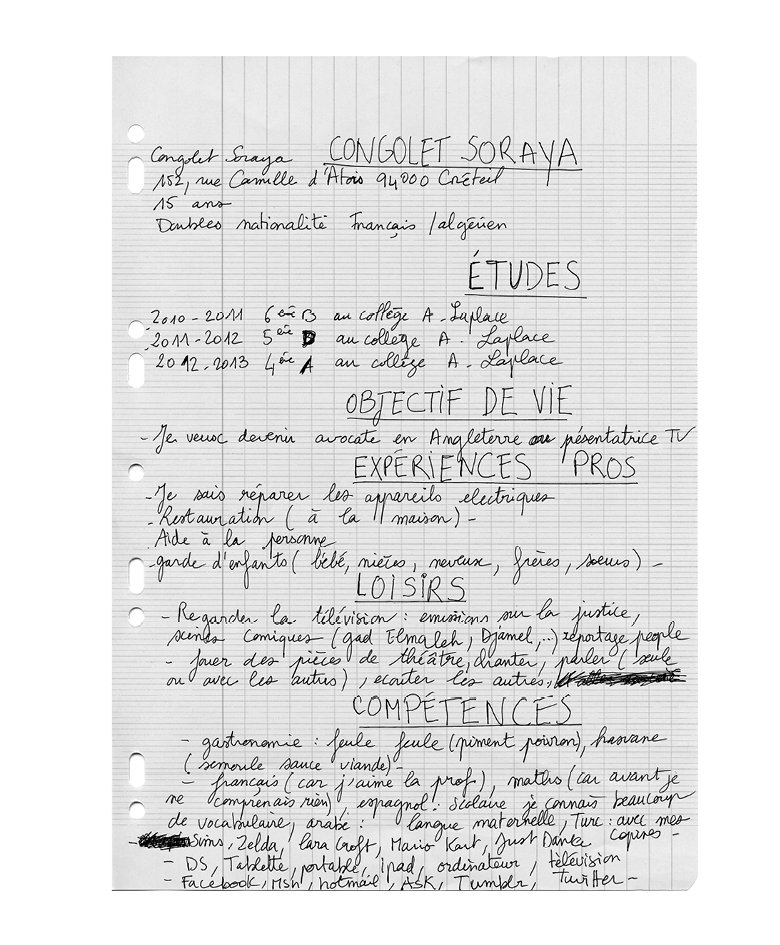 CONGOLET SORAYA
Congolet Soraya
152, rue Camille d'Atois 94000 Créteil
15 ans
Doubles nationalité Français / algérien
ÉTUDES
2010-2011 6ème B au collège A. Laplace
2011-2012 5ème B au college A. Laplace
2012-2013 4ème A au collège A. Laplace
OBJECTIF DE VIE
- Je veux devenir avocate en Angleterre ou pésentatrice TV
EXPÉRIENCES PROS
- Je sais réparer les appareils electriques
- Restauration ( à la maison) -
Aide à la personne
- garde d'enfants ( bébé, nièces, neveux, frères, soeurs) -
LOISIRS
- Regarder la télévision : emissions sur la justice,
scènes comiques (gad Elmaleh, Djamel,...) reportage people
- Jouer des pièces de théâtre, chanter, parler ( seule
ou avec les autres), ecouter les autres,
COMPÉTENCES
- gastronomie : feule feule (piment poivron), hasvane
( semoule sauce viande) -
- français (car j'aime la prof), maths (car avant je
ne comprenais rien), espagnol : scolaire je connais beaucoup
de vocabulaire, arabe : langue maternelle, Turc : avec mes
copines -
- Sims, Zelda, Lara Croft, Mario Kart, Just Dance
- DS, Tablette, portable, ipad, ordinateur, télévision
- Facebook, Msn, hotmail, ASK, Tumblr, Twitter -